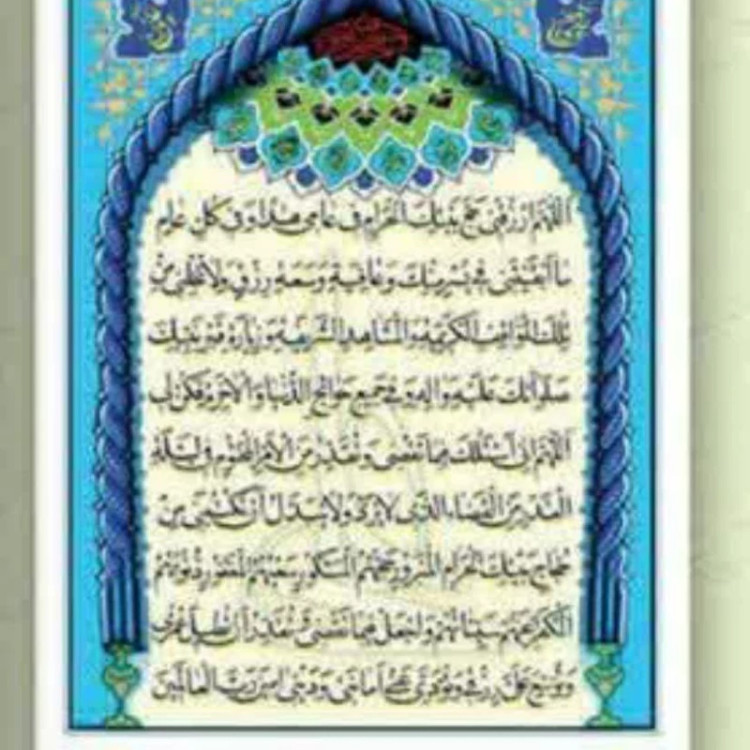 اللَّهُمَّ ارْزُقْنِی حَجَّ بَیْتِكَ الْحَرَامِ فِی عَامِی هٰذَا وَ فِی كُلِّ عَامٍ
مَا أَبْقَیْتَنِی فِی یُسْرٍ مِنْكَ وَ عَافِیَةٍ وَ سَعَةِ رِزْقٍ وَ لَا تُخْلِنِی مِنْ
تِلْكَ الْمَوَاقِفِ الْكَرِیمَةِ وَ الْمَشَاهِدِ الشَّرِیفَةِ وَ زِیَارَةِ قَبْرِ نَبِیِّكَ
صَلَوَاتُكَ عَلَیْهِ وَ آلِهِ وَ فِی جَمِیعِ حَوَائِجِ الدُّنْیَا وَ الْآخِرَةِ فَكُنْ لِی
اللَّهُمَّ إِنِّی أَسْئَلُكَ فِیمَا تَقْضِی وَ تُقَدِّرُ مِنَ الْأَمْرِ الْمَحْتُومِ فِی لَیْلَةِ
الْقَدْرِ مِنَ الْقَضَاءِ الَّذِی لَا یُرَدُّ وَ لَا یُبَدَّلُ أَنْ تَكْتُبَنِی مِنْ
حُجَّاجِ بَیْتِكَ الْحَرَامِ الْمَبْرُورِ حَجُّهُمْ الْمَشْكُورِ سَعْیُهُمْ الْمَغْفُورِ ذُنُوبُهُمْ
الْمُكَفَّرِ عَنْهُمْ سَیِّئَاتُهُمْ وَ اجْعَلْ فِیمَا تَقْضِی وَ تُقَدِّرُ أَنْ تُطِیلَ عُمْرِی
وَ تُوَسِّعَ عَلَیَّ رِزْقِی وَ تُؤَدِّیَ عَنِّی أَمَانَتِی وَ دَیْنِی آمِینَ رَبَّ الْعَالَمِینَ